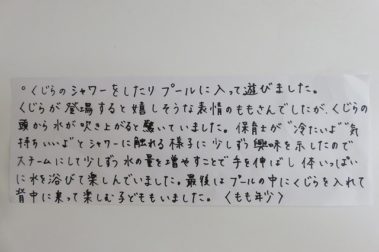 ○くじらのシャワーをしたりプールに入って遊びました。
くじらが登場すると嬉しそうな表情のももさんでしたが、くじらの
頭から水が吹き上がると驚いていました。保育士が"冷たいよ""気
持ちいいよ"とシャワーに触れる様子に少しずつ興味を示したので
スチームにして少しずつ水の量を増やすことで手を伸ばし体いっぱい
に水を浴びて楽しんでいました。最後はプールの中にくじらを入れて
背中に乗って楽しむ子どももいました。〈もも年少〉